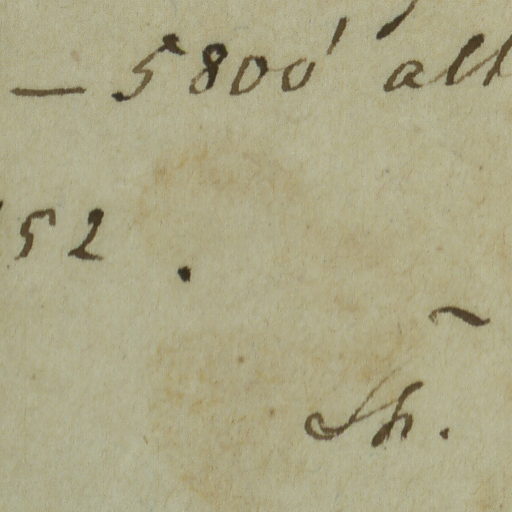 — 5800' alt
52.
Th.